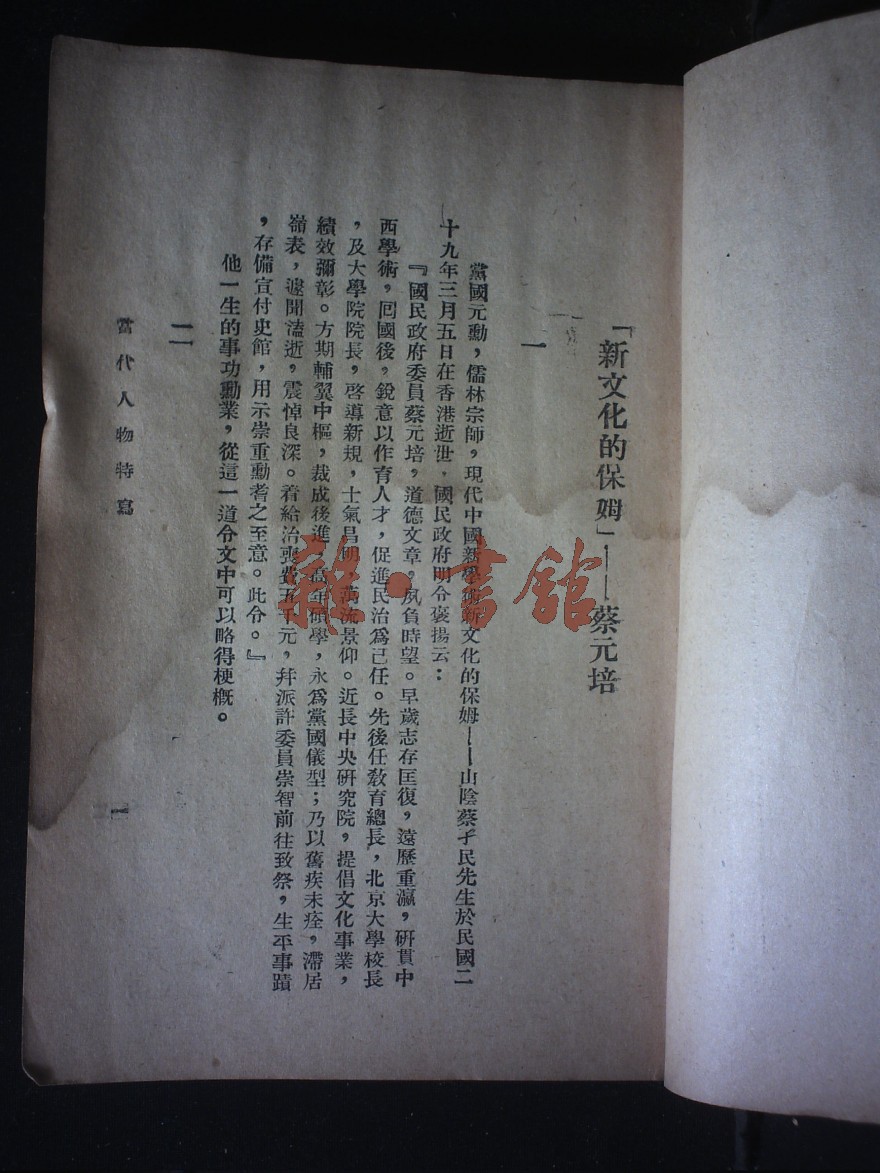 「新文化的保姆」——蔡元培
一
黨國元勳，儒林宗師，現代中國新學術新文化的保姆——山陰蔡孑民先生於民國二
十九年三月五日在香港逝世，國民政府明令褒揚云：
『國民政府委員蔡元培，道德文章，夙負時望。早歲志存匡復，遠歷重瀛，研貫中
西學術，回國後，銳意以作育人才，促進民治爲己任。先後任敎育總長，北京大學校長
，及大學院院長，啓導新規，士氣昌明，萬流景仰。近長中央硏究院，提倡文化事業，
績效彌彰。方期輔翼中樞，裁成後進，高年碩學，永爲黨國儀型；乃以舊疾未痊，滯居
嶺表，遽聞溘逝，震悼良深。着給治喪費五千元，幷派許委員崇智前往致祭，生平事蹟
，存備宣付史館，用示崇重勳耆之至意。此令。』
他一生的事功勳業，從這一道令文中可以略得梗槪。
二
當代人物特寫
一
雜·書館